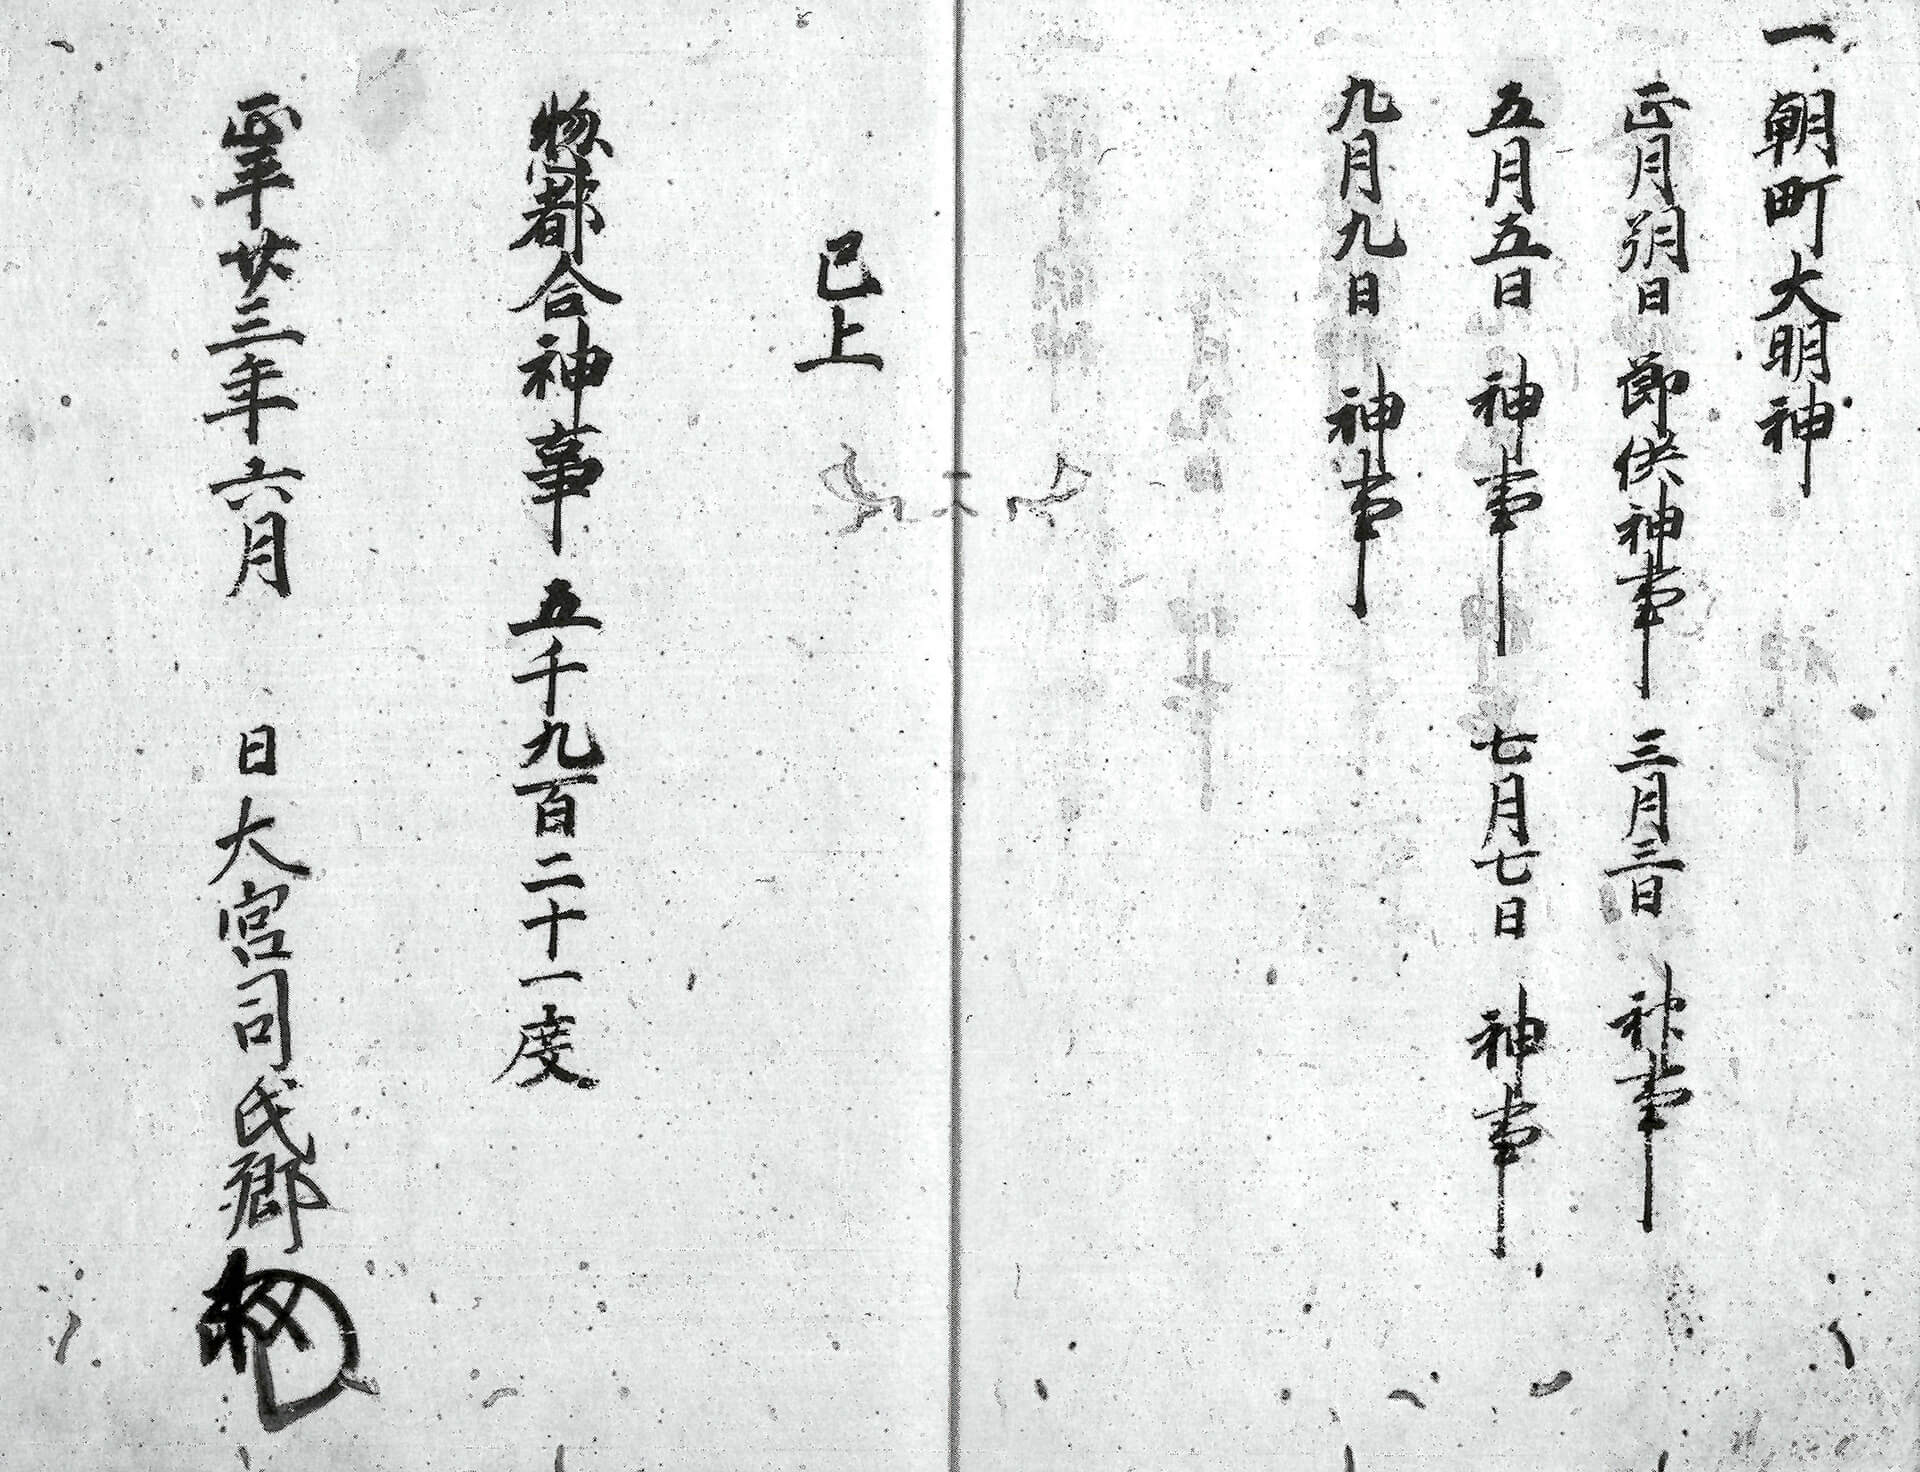 一朝町大明神
正月朔日 節供神事 三月三日 神事
五月五日 神事 七月七日 神事
九月九日 神事
已上
惣都合神事 五千九百二十一度
正平廿三年六月 日大宮司氏郷